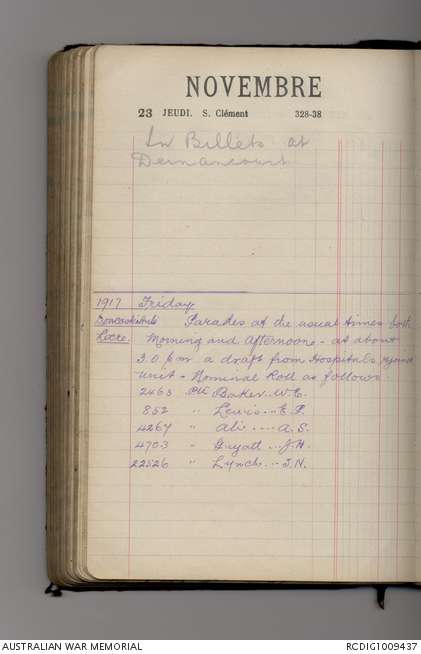 NOVEMBRE
23 JEUDI. S. Clément 328-38
In Billets at
Dernancourt
1917 Friday
Parades at the usual times both
Locre. Morning and Afternoons - at about
3.0 pm a draft from Hospitals rejoined
unit - Nominal Roll as follows
2463 Pte Baker. W.E.
852 " Lewis E.
4267 " Ali .... A.S.
4703 " .. J.H.
22526 " Lynch .. J.N.
AUSTRALIAN WAR MEMORIAL RCDIG1009437